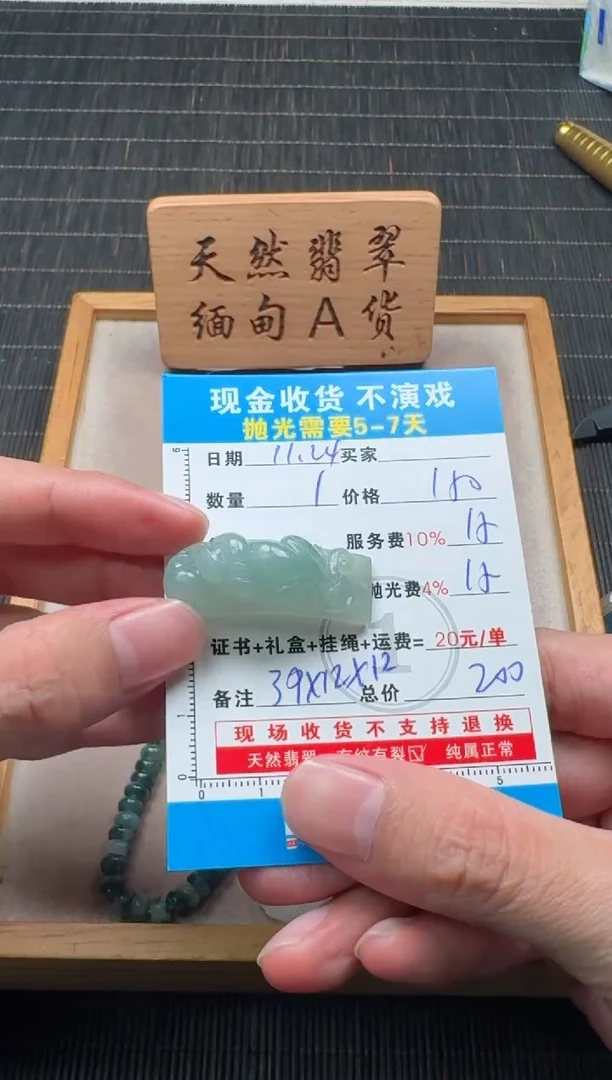 天然翡翠
缅甸A货
现金收货 不演戏
抛光需要5-7天
日期 11.24 买家
数量 1 价格 180
服务费10%
抛光费4%
证书+礼盒+挂绳+运费=20元/单
备注 39X12X12 总价 200
现场收货不支持退换
天然翡翠 有纹有裂☑ 纯属正常
0 1 5